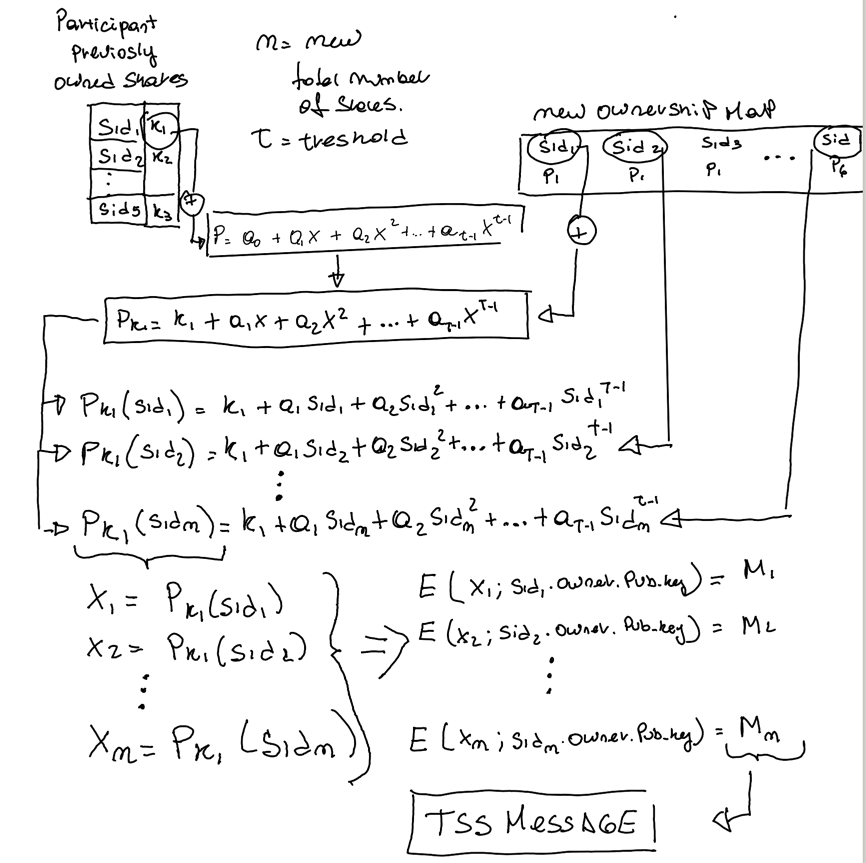 Participant
Previosly
owned shares
n = new
total number
of Shares.
T = treshold
new ownership Map
Sid₁ k₁
Sid₂ k₂
⋮
Sid5 k₃
Sid₁ Sid₂ Sid₃ ... Sid
P₁ P₁ P₁ P₆
+
+
P = a₀ + a₁x + a₂x² + ... + a_{t-1} x^{t-1}
P_{k₁} = k₁ + a₁x + a₂x² + ... + a_{T-1} x^{T-1}
P_{k₁}(Sid₁) = k₁ + a₁ Sid₁ + a₂ Sid₁² + ... + a_{T-1} Sid₁^{T-1}
P_{k₁}(Sid₂) = k₁ + a₁ Sid₂ + a₂ Sid₂² + ... + a_{T-1} Sid₂^{t-1}
⋮
P_{k₁}(Sidₙ) = k₁ + a₁ Sidₙ + a₂ Sidₙ² + ... + a_{T-1} Sidₙ^{t-1}
X₁ = P_{k₁}(Sid₁)
X₂ = P_{k₁}(Sid₂)
⋮
Xₙ = P_{k₁}(Sidₙ)
⇒
E(X₁; Sid₁.owner.Pub-key) = M₁
E(x₂; Sid₂.owner.Pub-key) = M₂
⋮
E(xₙ; Sidₙ.owner.Pub-key) = Mₙ
TSS MESSAGE